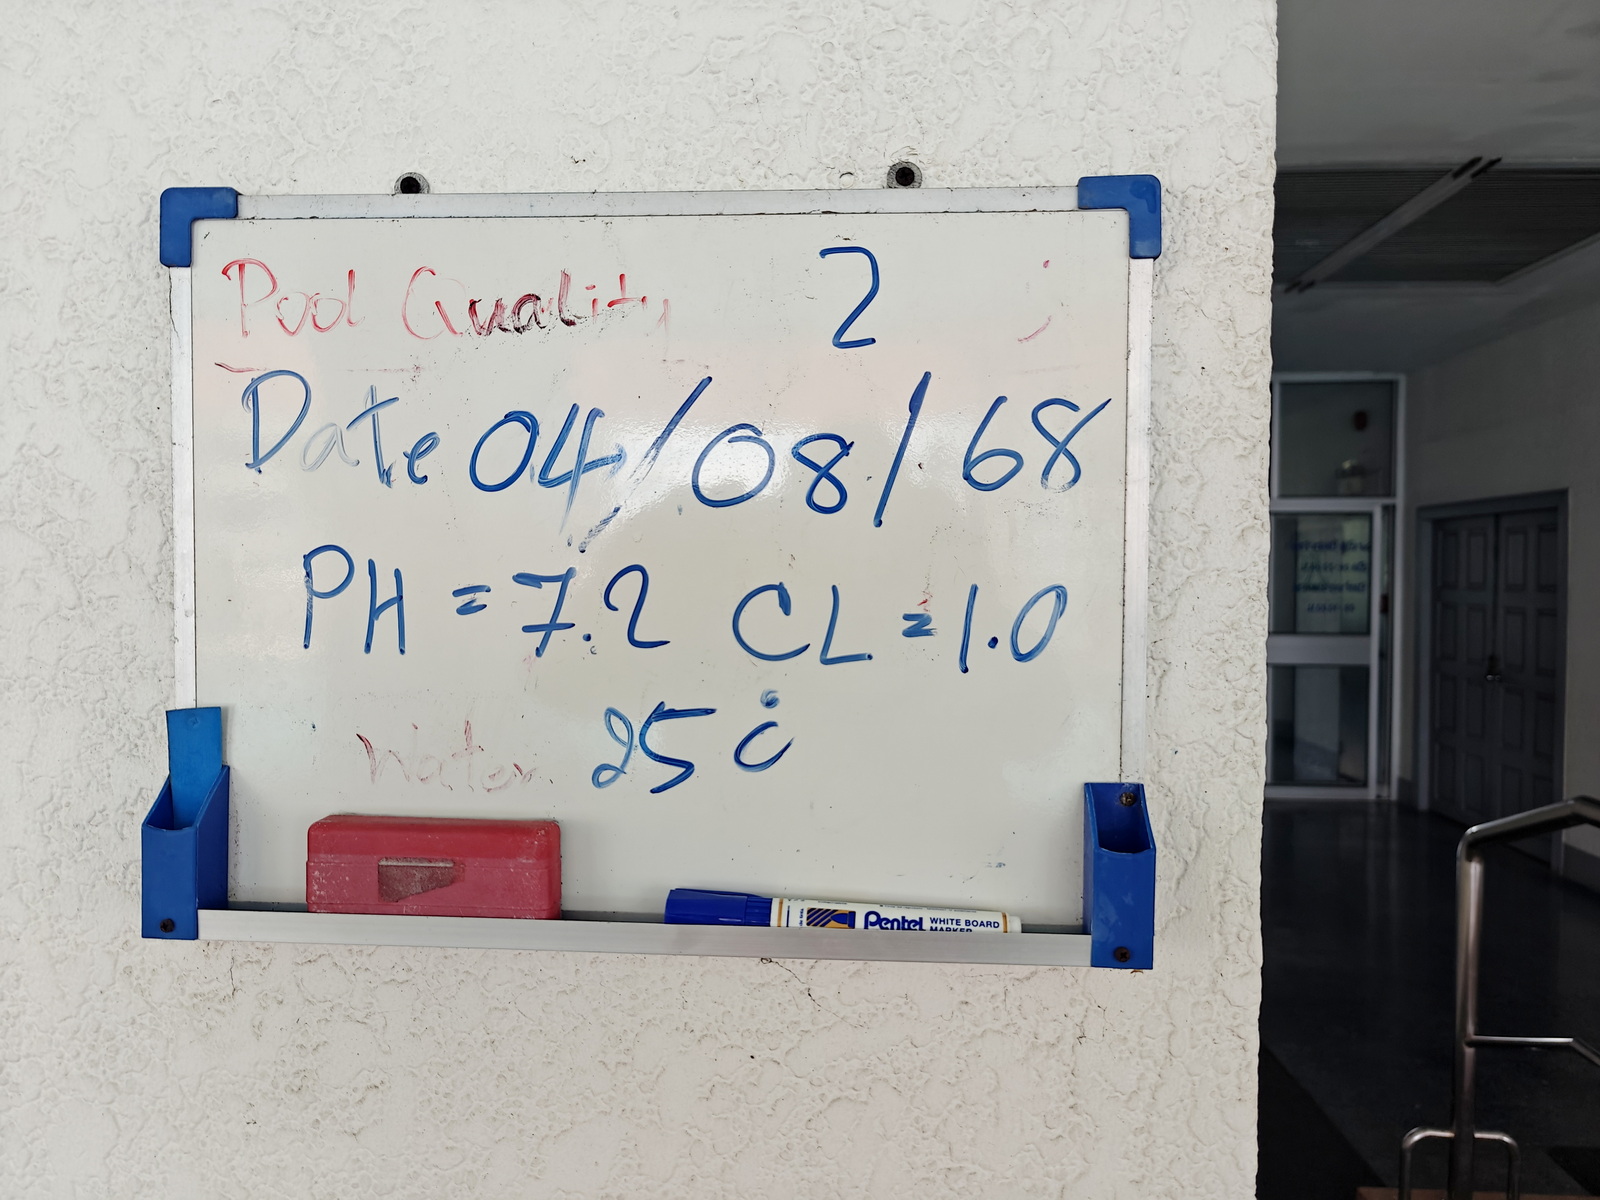 Pool Quality 2
Date 04/08/68
PH = 7.2 CL = 1.0
Water 25 °C
Pentel WHITE BOARD
MARKER